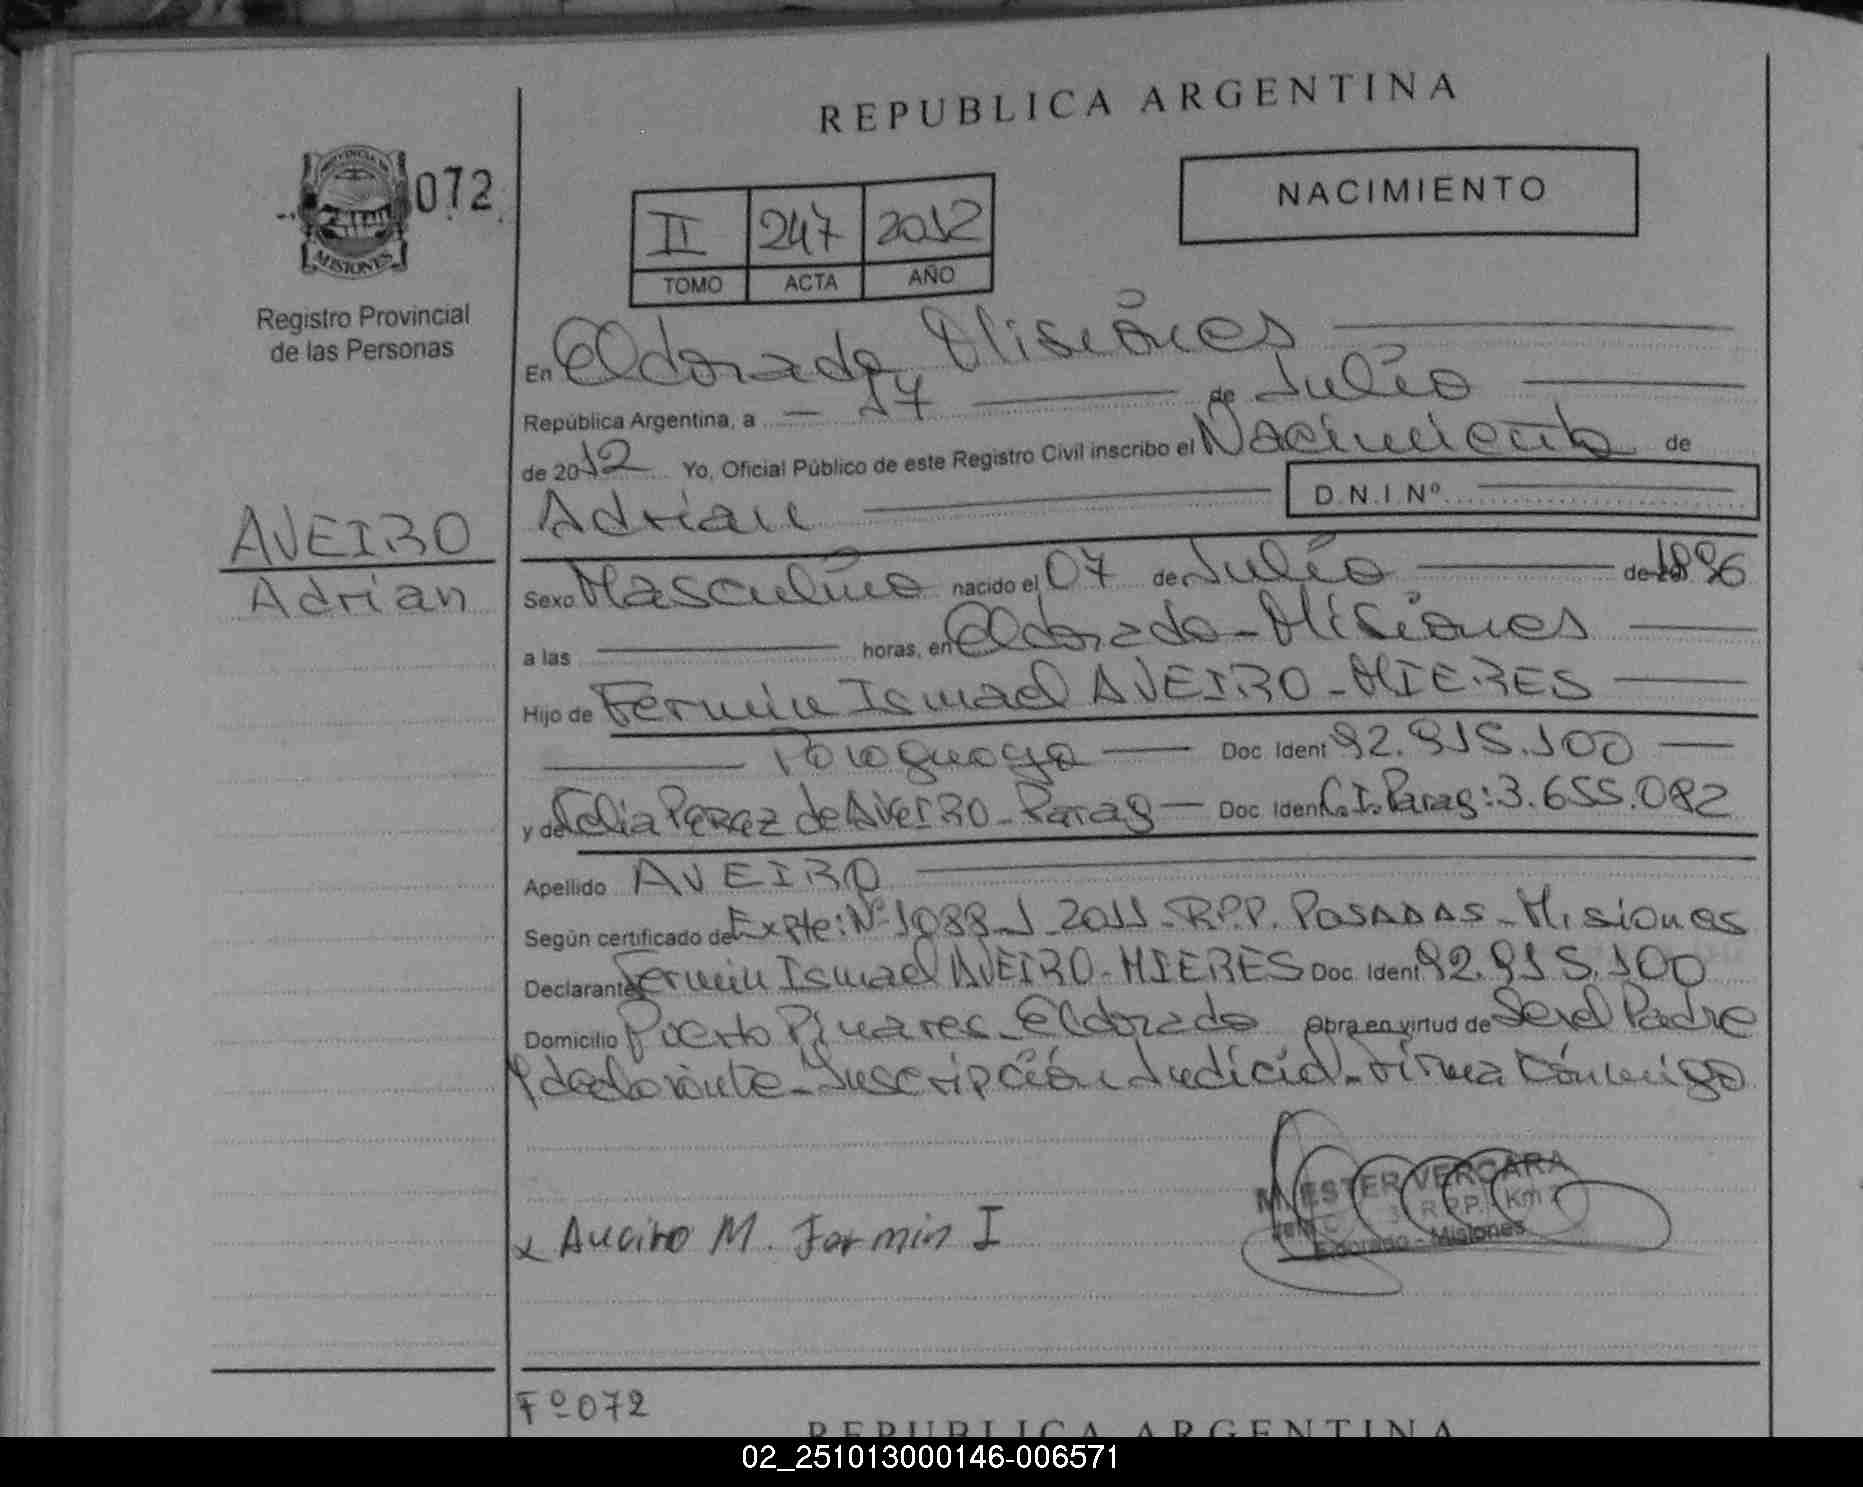 REPUBLICA ARGENTINA
072
NACIMIENTO
II 247 2012
TOMO ACTA AÑO
MISIONES
Registro Provincial
de las Personas
En Eldorado, Misiones
República Argentina, a 17 de Julio
de 2012 Yo, Oficial Público de este Registro Civil inscribo el Nacimiento de
Adrian D.N.I. Nº
AVEIRO
Adrian
Sexo Masculino nacido el 07 de Julio de 1996
a las horas, en Eldorado - Misiones
Hijo de Fermin Ismael AVEIRO - MIERES
Paraguaya Doc. Ident 92.915.100
y de Celia PEREZ de AVEIRO - Parag Doc. Ident C.I. Parag: 3.655.082
Apellido AVEIRO
Según certificado de Expte: Nº 1088-J-2011 - R.P.P. POSADAS - Misiones
Declarante Fermin Ismael AVEIRO - MIERES Doc. Ident 92.915.100
Domicilio Puerto Pinares - Eldorado Obra en virtud de Ser el Padre
y declarante - Inscripción Judicial - Firma Conmigo
M. ESTER VERGARA
R.P.P. Km
Eldorado - Misiones
x Aveiro M. Fermin I
Fº 072
REPUBLICA ARGENTINA
02_251013000146-006571